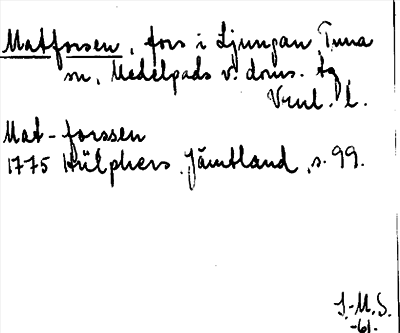 Matforsen, fors i Ljungan, Tuna
sn, Medelpads v. doms. tg
Vnl. l.
Mat-forssen
1775 Hülphers, Jämtland, s. 99.
J.-M.S.
-61.